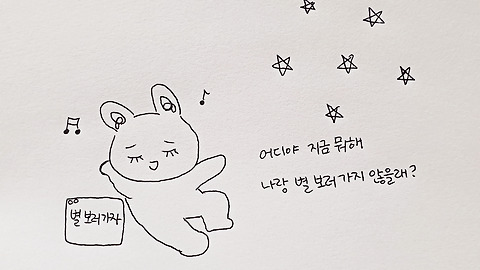 어디야 지금 뭐해
나랑 별 보러 가지 않을래?
별 보러 가자